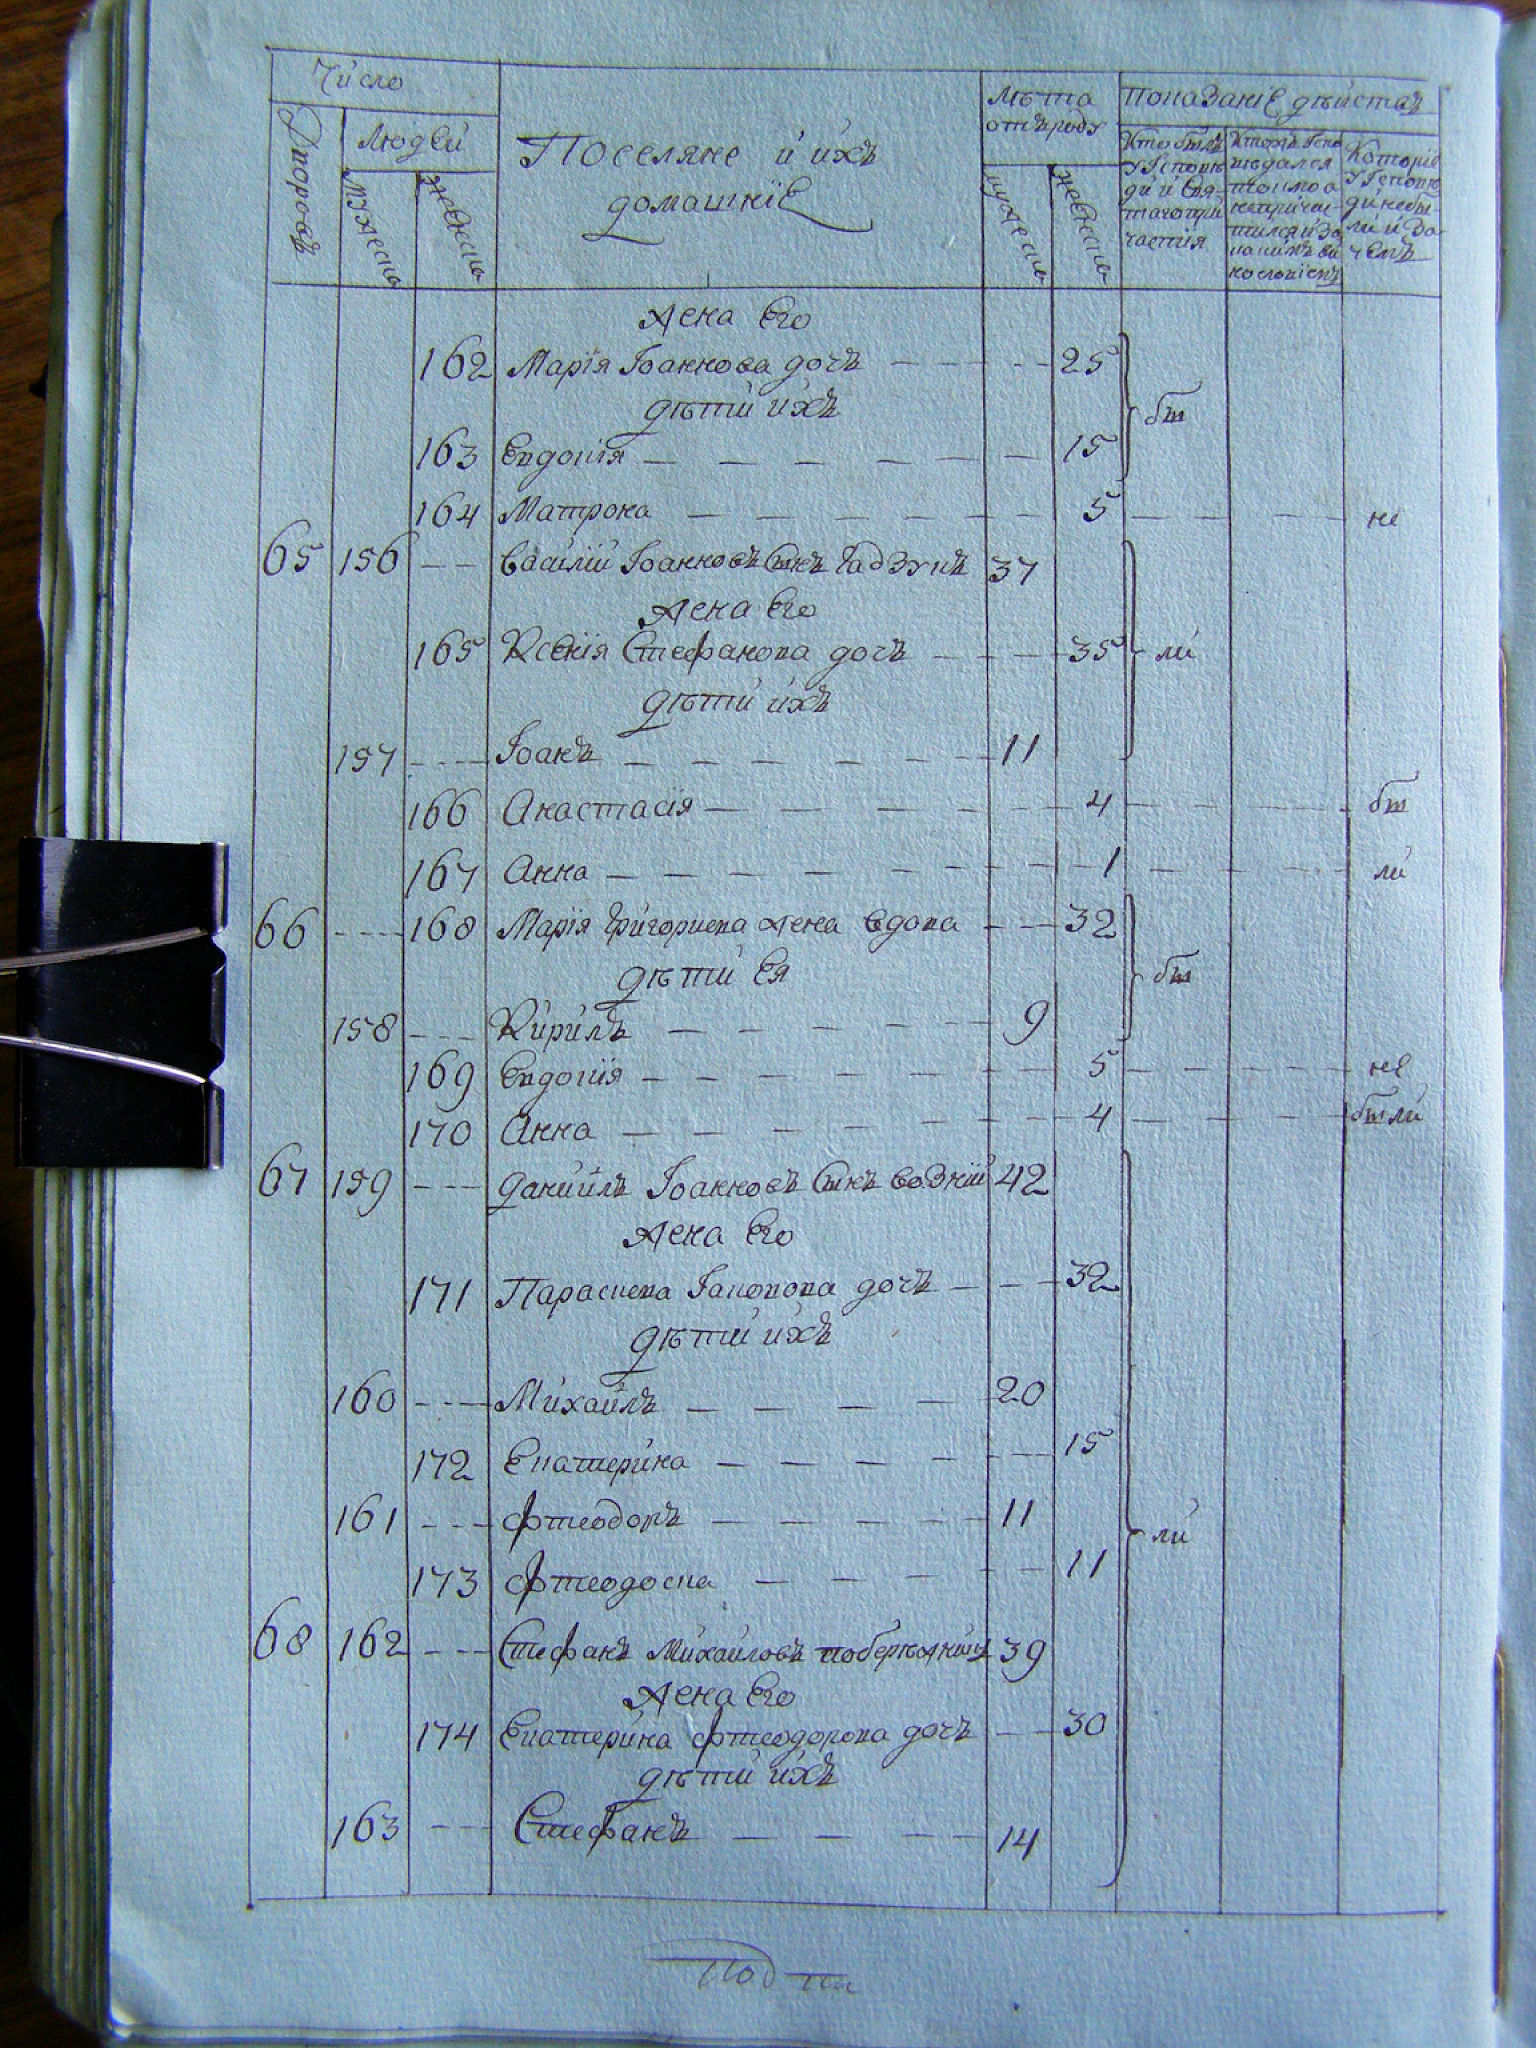 Число
Дворовъ
Людей
мужеска
женска
Поселяне и ихъ
домашніе
Лѣта
отъ роду
мужеска
женска
Показаніе дѣйства
Кто былъ
у Исповѣ
ди и Свя
таго при
частія
Котор
у Исповѣ
ди небы
ли и за
чемъ
Жена его
162 Марія Іоаннова дочь 25
дѣти ихъ
бы
163 Евдокія 15
164 Матрона 5 не
65 156 Василій Іоанновъ сынъ Гадзукъ 37
Жена его
165 Ксенія Стефанова дочь 35 ли
дѣти ихъ
157 Іоанъ 11
166 Анастасія 4 бы
167 Анна 1 ли
66 168 Марія Григориева жена вдова 32
дѣти ея бы
158 Кирилъ 9
169 Евдокія 5 не
170 Анна 4 были
67 159 Даниилъ Іоанновъ сынъ Возній 42
Жена его
171 Параскева Іаковова дочь 32
дѣти ихъ
160 Михаилъ 20
172 Екатерина 15
161 Фтеодоръ 11 ли
173 Фтеодосиа 11
68 162 Стефанъ Михайловъ побережний 39
Жена его
174 Екатерина Фтеодорова дочь 30
дѣти ихъ
163 Стефанъ 14